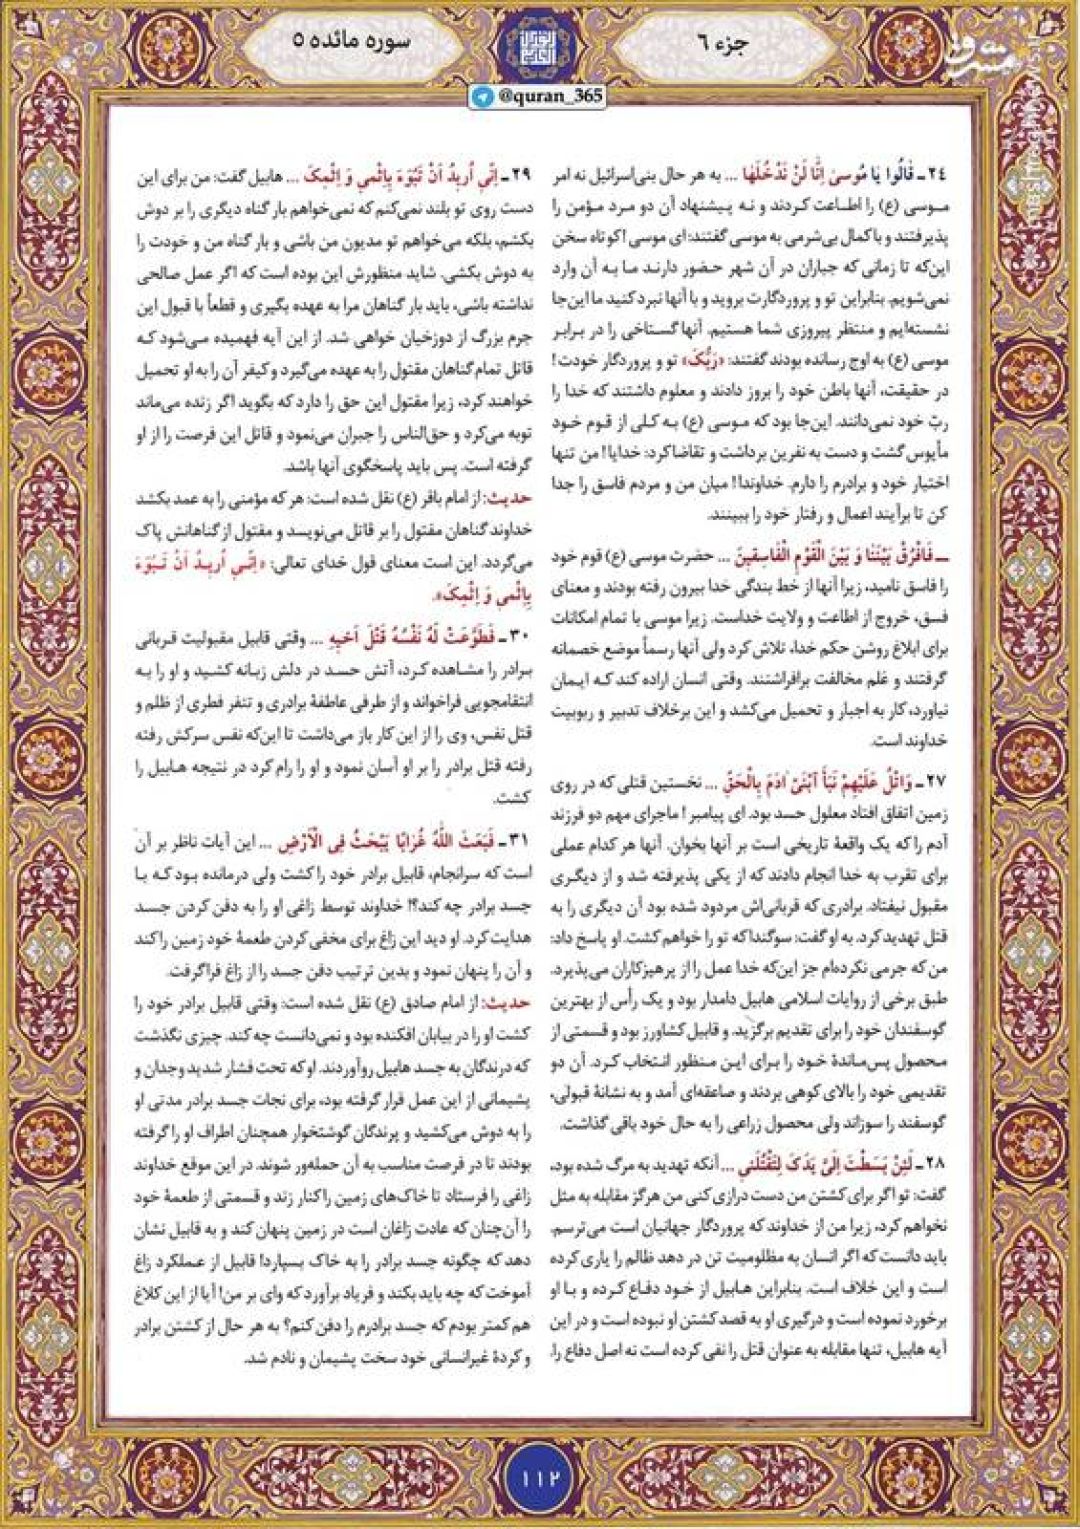 جزء ۶
سوره مائده ۵
مشرق
@quran_365
۲۴ـ قَالُوا یَا مُوسیٰ اِنَّا لَنْ نَدْخُلَهَا ... به هر حال بنی‌اسرائیل نه امر
موسی (ع) را اطاعت کردند و نه پیشنهاد آن دو مرد مؤمن را
پذیرفتند و با کمال بی‌شرمی به موسی گفتند: ای موسی! کوتاه سخن
این‌که تا زمانی که جباران در آن شهر حضور دارند ما به آن وارد
نمی‌شویم. بنابراین تو و پروردگارت بروید و با آنها نبرد کنید ما این‌جا
نشسته‌ایم و منتظر پیروزی شما هستیم. آنها گستاخی را در برابر
موسی (ع) به اوج رسانده بودند گفتند: «رَبُّکَ» تو و پروردگار خودت!
در حقیقت، آنها باطن خود را بروز دادند و معلوم داشتند که خدا را
ربّ خود نمی‌دانند. این‌جا بود که موسی (ع) به کلی از قوم خود
مأیوس گشت و دست به نفرین برداشت و تقاضا کرد: خدایا! من تنها
اختیار خود و برادرم را دارم. خداوندا! میان من و مردم فاسق را جدا
کن تا برآیند اعمال و رفتار خود را ببینند.
ــ فَافْرُقْ بَیْنَنَا وَ بَیْنَ الْقَوْمِ الْفَاسِقِینَ ... حضرت موسی (ع) قوم خود
را فاسق نامید، زیرا آنها از خط بندگی خدا بیرون رفته بودند و معنای
فسق، خروج از اطاعت و ولایت خداست. زیرا موسی با تمام امکانات
برای ابلاغ روشن حکم خدا، تلاش کرد ولی آنها رسماً موضع خصمانه
گرفتند و عَلم مخالفت برافراشتند. وقتی انسان اراده کند که ایمان
نیاورد، کار به اجبار و تحمیل می‌کشد و این برخلاف تدبیر و ربوبیت
خداوند است.
۲۷ـ وَاتْلُ عَلَیْهِمْ نَبَأَ ابْنَیْ آدَمَ بِالْحَقِّ ... نخستین قتلی که در روی
زمین اتفاق افتاد معلول حسد بود. ای پیامبر! ماجرای مهم دو فرزند
آدم را که یک واقعهٔ تاریخی است بر آنها بخوان. آنها هر کدام عملی
برای تقرب به خدا انجام دادند که از یکی پذیرفته شد و از دیگری
مقبول نیفتاد. برادری که قربانی‌اش مردود شده بود آن دیگری را به
قتل تهدید کرد. به او گفت: سوگند! که تو را خواهم کشت. او پاسخ داد:
من که جرمی نکرده‌ام جز این‌که خدا عمل را از پرهیزکاران می‌پذیرد.
طبق برخی از روایات اسلامی هابیل دامدار بود و یک رأس از بهترین
گوسفندان خود را برای تقدیم برگزید. و قابیل کشاورز بود و قسمتی از
محصول پس‌ماندهٔ خود را برای این منظور انتخاب کرد. آن دو
تقدیمی خود را بالای کوهی بردند و صاعقه‌ای آمد و به نشانهٔ قبولی،
گوسفند را سوزاند ولی محصول زراعی را به حال خود باقی گذاشت.
۲۸ـ لَئِنْ بَسَطْتَ اِلَیَّ یَدَکَ لِتَقْتُلَنی ... آنکه تهدید به مرگ شده بود،
گفت: تو اگر برای کشتن من دست درازی کنی من هرگز مقابله به مثل
نخواهم کرد، زیرا من از خداوند که پروردگار جهانیان است می‌ترسم.
باید دانست که اگر انسان به مظلومیت تن در دهد ظالم را یاری کرده
است و این خلاف است. بنابراین هابیل از خود دفاع کرده و با او
برخورد نموده است و درگیری او به قصد کشتن او نبوده است و در این
آیه هابیل، تنها مقابله به عنوان قتل را نفی کرده است نه اصل دفاع را.
۲۹ـ اِنّی اُریدُ اَنْ تَبُوءَ بِاِثْمی وَ اِثْمِکَ ... هابیل گفت: من برای این
دست روی تو بلند نمی‌کنم که نمی‌خواهم بار گناه دیگری را بر دوش
بکشم، بلکه می‌خواهم تو مدیون من باشی و بار گناه من و خودت را
به دوش بکشی. شاید منظورش این بوده است که اگر عمل صالحی
نداشته باشی، باید بار گناهان مرا به عهده بگیری و قطعاً با قبول این
جرم بزرگ از دوزخیان خواهی شد. از این آیه فهمیده می‌شود که
قاتل تمام گناهان مقتول را به عهده می‌گیرد و کیفر آن را به او تحمیل
خواهند کرد، زیرا مقتول این حق را دارد که بگوید اگر زنده می‌ماند
توبه می‌کرد و حق‌الناس را جبران می‌نمود و قاتل این فرصت را از او
گرفته است. پس باید پاسخگوی آنها باشد.
حدیث: از امام باقر (ع) نقل شده است: هر که مؤمنی را به عمد بکشد
خداوند گناهان مقتول را بر قاتل می‌نویسد و مقتول از گناهانش پاک
می‌گردد. این است معنای قول خدای تعالی: «اِنّی اُریدُ اَنْ تَبُوءَ
بِاِثْمی وَ اِثْمِکَ».
۳۰ـ فَطَوَّعَتْ لَهُ نَفْسُهُ قَتْلَ اَخیهِ ... وقتی قابیل مقبولیت قربانی
برادر را مشاهده کرد، آتش حسد در دلش زبانه کشید و او را به
انتقامجویی فراخواند و از طرفی عاطفهٔ برادری و تنفر فطری از ظلم و
قتل نفس، وی را از این کار باز می‌داشت تا این‌که نفس سرکش رفته
رفته قتل برادر را بر او آسان نمود و او را رام کرد در نتیجه هابیل را
کشت.
۳۱ـ فَبَعَثَ اللّٰهُ غُرَابًا یَبْحَثُ فِی الْاَرْضِ ... این آیات ناظر بر آن
است که سرانجام، قابیل برادر خود را کشت ولی درمانده بود که با
جسد برادر چه کند؟! خداوند توسط زاغی او را به دفن کردن جسد
هدایت کرد. او دید این زاغ برای مخفی کردن طعمهٔ خود زمین را کند
و آن را پنهان نمود و بدین ترتیب دفن جسد را از زاغ فراگرفت.
حدیث: از امام صادق (ع) نقل شده است: وقتی قابیل برادر خود را
کشت او را در بیابان افکنده بود و نمی‌دانست چه کند. چیزی نگذشت
که درندگان به جسد هابیل روآوردند. او که تحت فشار شدید وجدان و
پشیمانی از این عمل قرار گرفته بود، برای نجات جسد برادر مدتی او
را به دوش می‌کشید و پرندگان گوشتخوار همچنان اطراف او را گرفته
بودند تا در فرصت مناسب به آن حمله‌ور شوند. در این موقع خداوند
زاغی را فرستاد تا خاک‌های زمین را کنار زند و قسمتی از طعمهٔ خود
را آن‌چنان که عادت زاغان است در زمین پنهان کند و به قابیل نشان
دهد که چگونه جسد برادر را به خاک بسپارد! قابیل از عملکرد زاغ
آموخت که چه باید بکند و فریاد برآورد که وای بر من! آیا از این کلاغ
هم کمتر بودم که جسد برادرم را دفن کنم؟ به هر حال از کشتن برادر
و کردهٔ غیرانسانی خود سخت پشیمان و نادم شد.
۱۱۲